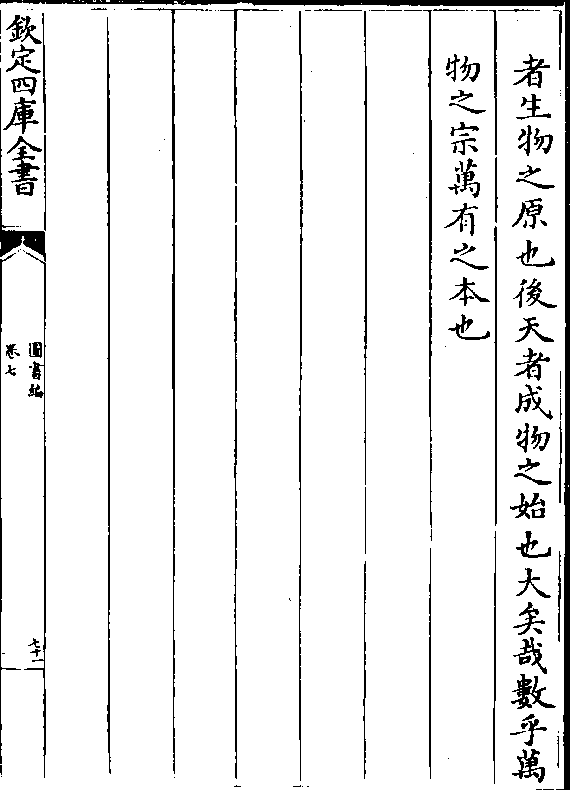 者生物之原也後天者成物之始也大矣哉數乎萬
物之宗萬有之本也
欽定四庫全書
圖書編
卷七
七十一